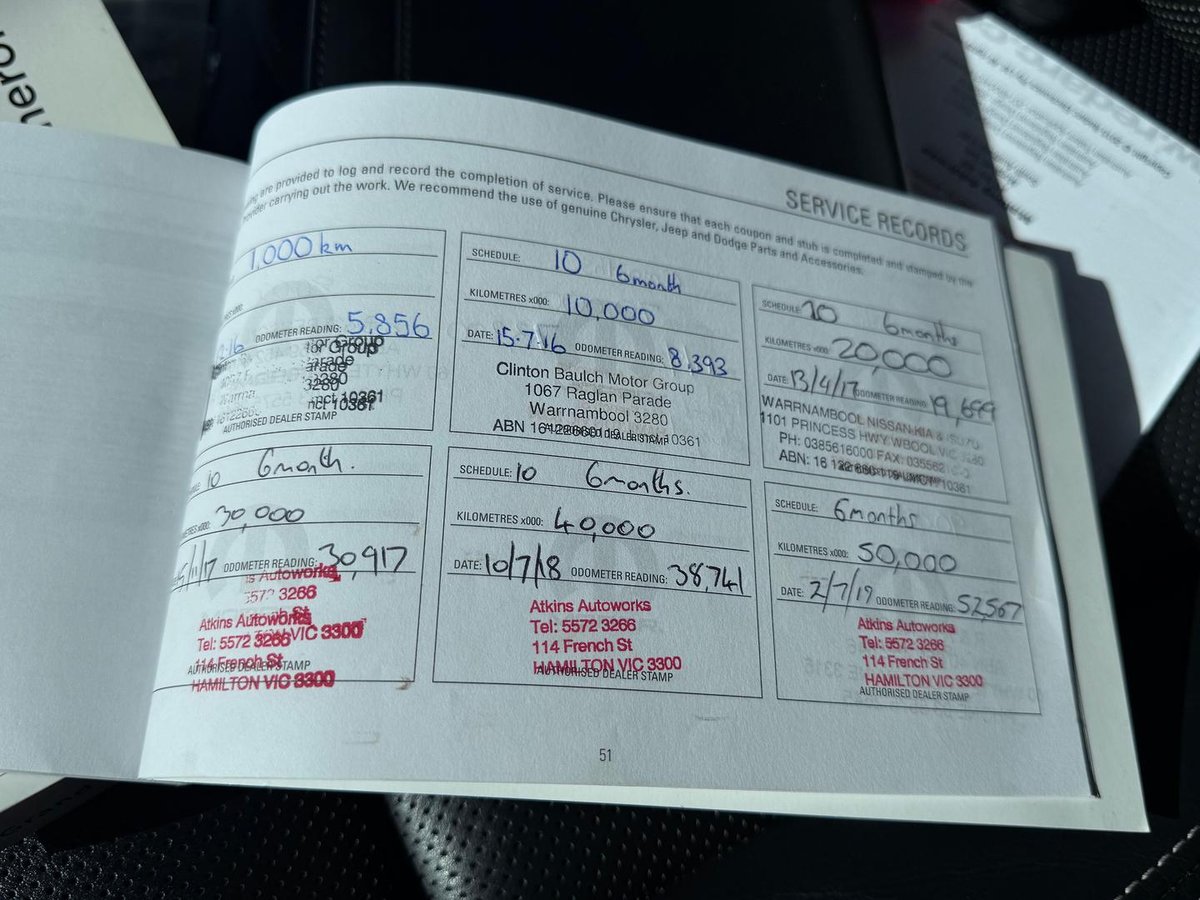 SERVICE RECORDS
are provided to log and record the completion of service. Please ensure that each coupon and stub is completed and stamped by the
carrying out the work. We recommend the use of genuine Chrysler, Jeep and Dodge Parts and Accessories.
1,000 km
ODOMETER READING: 5,856
AUTHORISED DEALER STAMP
SCHEDULE: 10 6month
KILOMETRES x000: 10,000
DATE: 15.7.16 ODOMETER READING: 8,393
Clinton Baulch Motor Group
1067 Raglan Parade
Warrnambool 3280
SCHEDULE: 10 6months
KILOMETRES x000: 20,000
DATE: 13/4/17 ODOMETER READING: 19,699
WARRNAMBOOL NISSAN KIA & ISUZU
1101 PRINCESS HWY W'BOOL VIC 3280
PH: 0385616000 FAX: 035562
10 6month.
30,000
/11/17 ODOMETER READING: 30,917
Atkins Autoworks
Tel: 5572 3266
114 French St
AUTHORISED DEALER STAMP
HAMILTON VIC 3300
SCHEDULE: 10 6months.
KILOMETRES x000: 40,000
DATE: 10/7/18 ODOMETER READING: 38,741
Atkins Autoworks
Tel: 5572 3266
114 French St
HAMILTON VIC 3300
AUTHORISED DEALER STAMP
SCHEDULE: 6months
KILOMETRES x000: 50,000
DATE: 2/7/19 ODOMETER READING: 52,567
Atkins Autoworks
Tel: 5572 3266
114 French St
HAMILTON VIC 3300
AUTHORISED DEALER STAMP
51